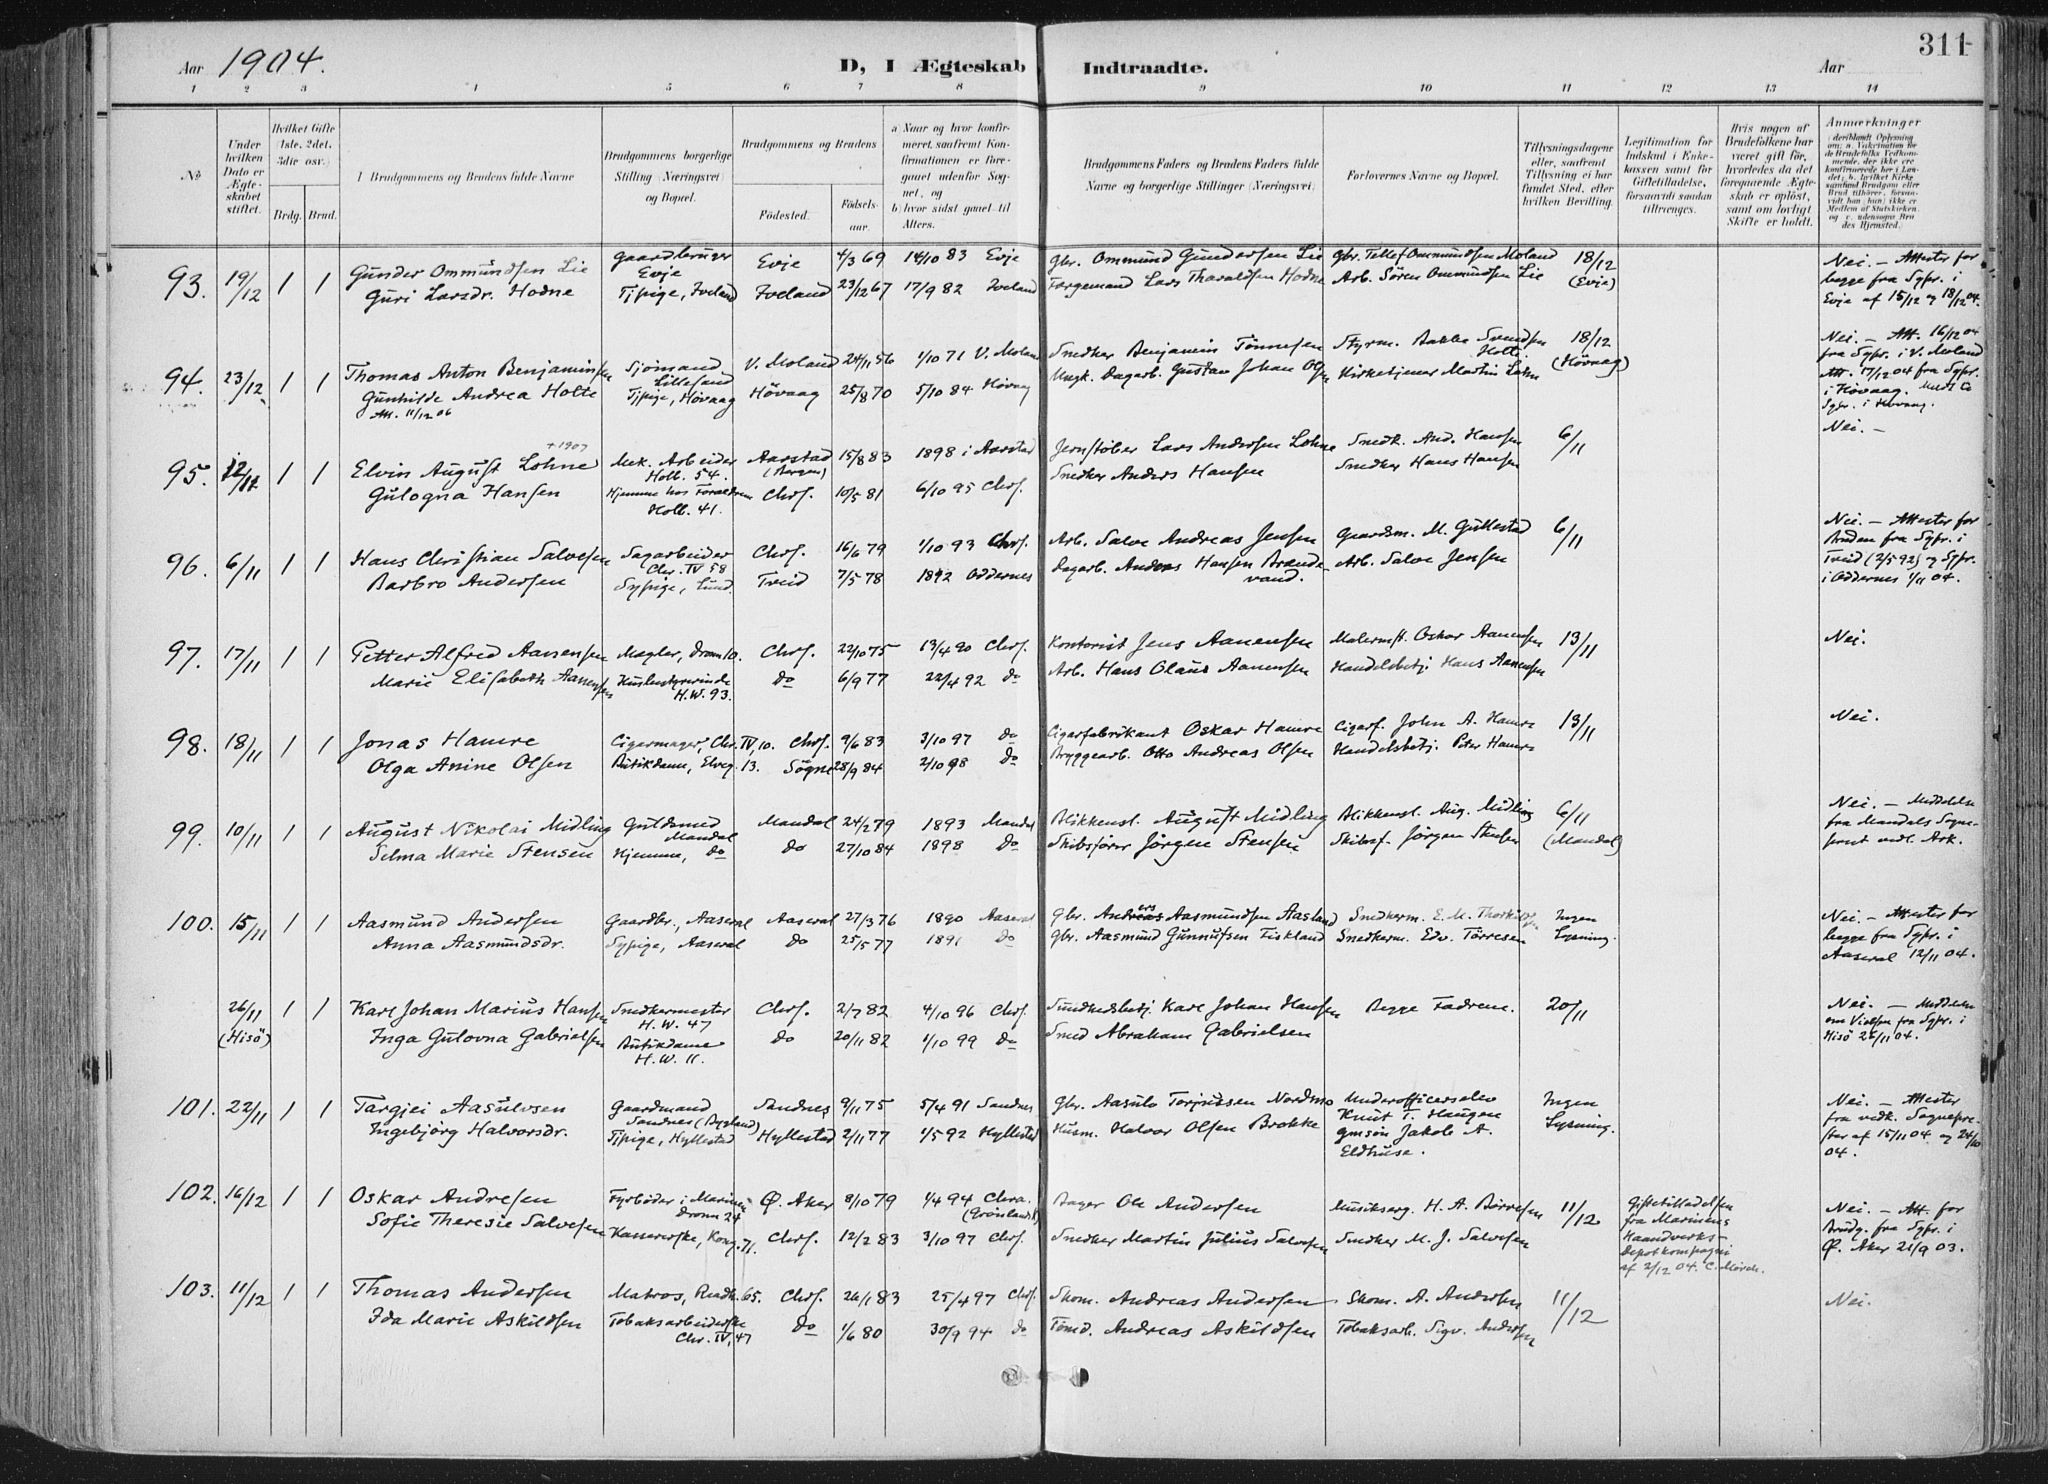 Aar 1904.
D, I Ægteskab Indtraadte.
Aar
311
1 2 3 4 5 6 7 8 9 10 11 12 13 14
No
Under hvilken Dato er Ægteskabet stiftet.
Hvilket Gifte (1ste, 2det, 3die osv.)
Brdg. Brud.
Brudgommens og Brudens fulde Navne
Brudgommens borgerlige Stilling (Næringsvei) og Bopæl.
Brudgommens og Brudens
Fødested.
Fødselsaar.
a) Naar og hvor konfirmeret, saafremt Konfirmationen er foregaaet udenfor Sognet, og
b) hvor sidst gaaet til Alters.
Brudgommens Faders og Brudens Faders fulde Navne og borgerlige Stillinger (Næringsvei).
Forlovernes Navne og Bopæl.
Tillysningsdagene eller, saafremt Tillysning ei har fundet Sted, efter hvilken Bevilling.
Legitimation for Indskud i Enkekassen samt for Giftetilladelse, forsaavidt saadan tiltrænges.
Hvis nogen af Brudefolkene har været gift før, hvorledes da det foregaaende Ægteskab er opløst, samt om lovligt Skifte er holdt.
Anmærkninger
93. 19/12 1 1 Gunder Ommundsen Lie Gaardbruger Evje Evje 4/3 69 14/10 83 Evje Gbr. Ommund Gundersen Lie Gbr. Tellef Ommundsen Moland 18/12 (Evje) Nei. — Attester for
Guri Larsdr. Hodne Tjpige, Iveland Iveland 23/12 67 17/9 82 Iveland Færgemand Lars Tharaldsen Hodne Arb. Sören Ommundsen Lie begge fra Sgpr. i
Evje af 15/12 og 18/12 04.
94. 23/12 1 1 Thomas Anton Benjaminsen Sjömand Lillesand V. Moland 24/11 56 1/10 71 V. Moland Snedker Benjamin Tönnesen Styrm. Bakke Svendsen Holte 18/12 (Hövaag) Nei. — Att. 16/12 04
Gunhilde Andrea Holte Tjpige, Hövaag Hövaag 25/8 70 5/10 84 Hövaag Ungk. Dagarb. Gustav Johan Olsen Kirketjener Martin fra Sgpr. i V. Moland
Att. 11/12 06 Att. 17/12 04 fra Sgpr.
i Hövaag.
Sgpr. i Hövaag.
95. 12/11 1 1 Elvin August Lohne +1907 Mek. Arbeider Holb. 54. Aarstad (Bergen) 15/8 83 1898 i Aarstad Jernstöber Lars Andersen Lohne Snedk. And. Hansen 6/11 Nei. —
Gulogna Hansen Hjemme hos Foraeldrene Holb. 41. Chrs. 10/5 81 6/10 95 Chrs. Snedker Anders Hansen Snedker Hans Hansen
96. 6/11 1 1 Hans Christian Salvesen Sagarbeider Chr. IV 58 Chrs. 16/6 79 1/10 93 Chrs. Arb. Salve Andreas Jensen Gaardsm. M. Gullestad 6/11 Nei. — Attester for
Barbro Andersen Sypige, Lund. Tveid 7/5 78 1892 Oddernes Dagarb. Anders Hansen Brandevand. Arb. Salve Jensen Bruden fra Sgpr. i
Tveid (2/5 92) og Sgpr.
i Oddernes 1/11 04.
97. 17/11 1 1 Petter Alfred Aanensen Mægler, Dronn 10. Chrs. 22/10 75 13/4 90 Chrs. Kontorist Jens Aanensen Malermst. Oskar Aanensen 13/11 Nei.
Marie Elisabeth Aanensen Husbestyrerinde H.W. 93. do 6/9 77 22/4 92 do Arb. Hans Olaus Aanensen Handelsbetj. Hans Aanensen
98. 18/11 1 1 Jonas Hamre Cigarmager, Chr. IV, 10. Chrs. 9/6 83 3/10 97 do Cigarfabrikant Oskar Hamre Cigarf. John A. Hamre 13/11 Nei.
Olga Anine Olsen Butikdame, Elveg. 13. Sögne 28/9 84 2/10 98 do Bryggearb. Otto Andreas Olsen Handelsbetj. Peter Hamre
99. 10/11 1 1 August Nikolai Midling Guldsmed Mandal Mandal 24/2 79 1893 Mandal Blikkensl. August Midling Blikkensl. Aug. Midling 6/11 (Mandal) Nei. — Meddelse
Selma Marie Stensen Hjemme, do do 27/10 84 1898 do Skibsförer Jörgen Stensen Skibsf. Jörgen Stensen fra Mandals Sogneprest vedl. Ark.
100. 15/11 1 1 Aasmund Andersen Gaardbr., Aaseral Aaseral 27/3 76 1890 Aaseral Gbr. Anders Aasmundsen Aasland Snedkerm. E. M. Thorkildsen Ingen Lysning. Nei. — Attester for
Anna Aasmundsdr. Sypige, Aaseral do 25/5 77 1891 do Gbr. Aasmund Gunnufsen Fiskland Snedkerm. Edv. Törresen begge fra Sgpr. i
Aaseral 12/11 04.
26/11 (Hisö) 1 1 Karl Johan Marius Hansen Snedkermester H.W. 47 Chrs. 2/7 82 4/10 96 Chrs. Sundhedsbetj. Karl Johan Hansen Begge Fædrene. 20/11 Nei. — Meddelse
Inga Gulovna Gabrielsen Butikdame H.W. 11. do 20/11 82 1/10 99 do Smed Abraham Gabrielsen om Vielsen fra Sgpr. i
Hisö 26/11 04.
101. 22/11 1 1 Targjei Aasulvsen Gaardmand Sandnes (Bygland) Sandnes 9/11 75 5/4 91 Sandnes Gbr. Aasulv Torjussen Nordmo Underofficerselev Knut T. Haugen Ingen Lysning. Nei. — Attester
Ingebjörg Halvorsdr. Tjpige, Hyllestad Hyllestad 2/11 77 1/5 92 Hyllestad Husm. Halvor Olsen Brokke gmsön Jakob A. Eldhuse. fra vedk. Sogneprester af 15/11 04 og 24/10 04.
102. 16/12 1 1 Oskar Andresen Fyrböder i Marinen Dronn 24 Ø. Aker 8/10 79 1/4 94 Chra. (Grönland) Bager Ole Andersen Musikserg. H. A. Börresen 11/12 Giftetilladelsen fra Marinens Haandverks-Depotkompagni af 2/12 04. Nei. — Att. for
Sofie Theresie Salvesen Kassererske, Kong. 71. Chrs. 12/2 83 3/10 97 Chrs. Snedker Martin Julius Salvesen Snedker M. J. Salvesen Brudg. fra Sgpr. i
Ø. Aker 21/9 03.
103. 11/12 1 1 Thomas Andersen Matros, Raadh. 65. Chrs. 26/1 83 25/4 97 Chrs. Skom. Andreas Andersen Skom. A. Andersen 11/12 Nei.
Ida Marie Askildsen Tobaksarbeiderske Chr. IV, 47 do 1/6 80 30/9 94 do Tömd. Andreas Askildsen Tobaksarb. Sigv. Andersen